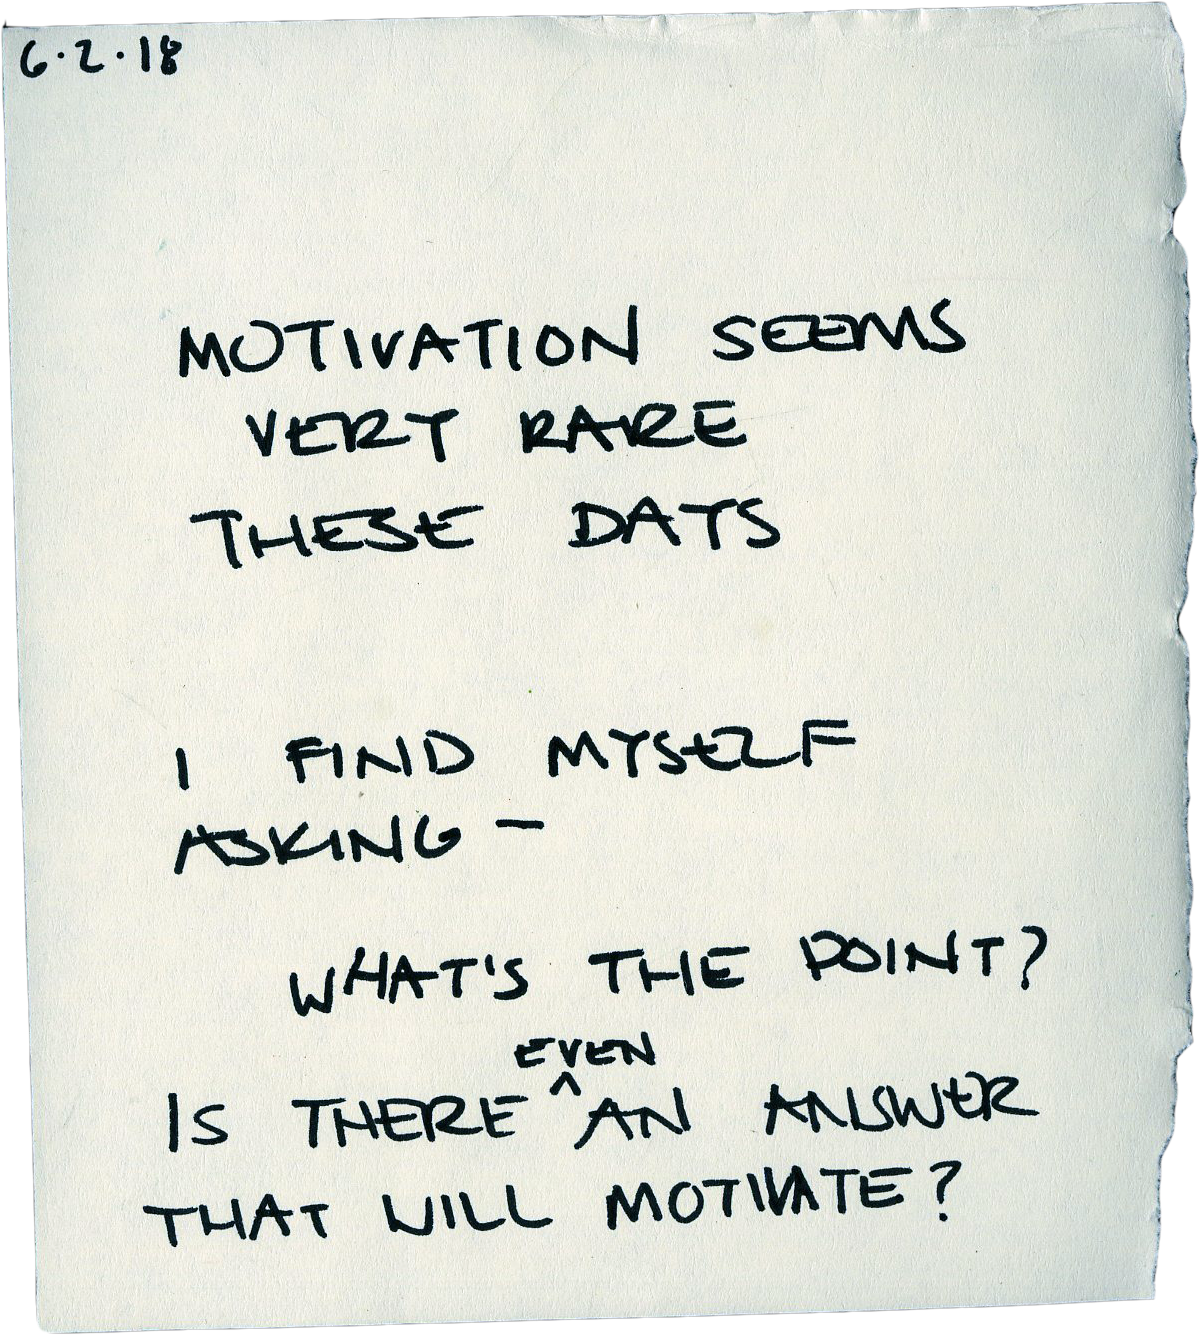 6·2·18
MOTIVATION SEEMS
VERY RARE
THESE DAYS
I FIND MYSELF
ASKING —
WHAT'S THE POINT?
EVEN
IS THERE ^ AN ANSWER
THAT WILL MOTIVATE?